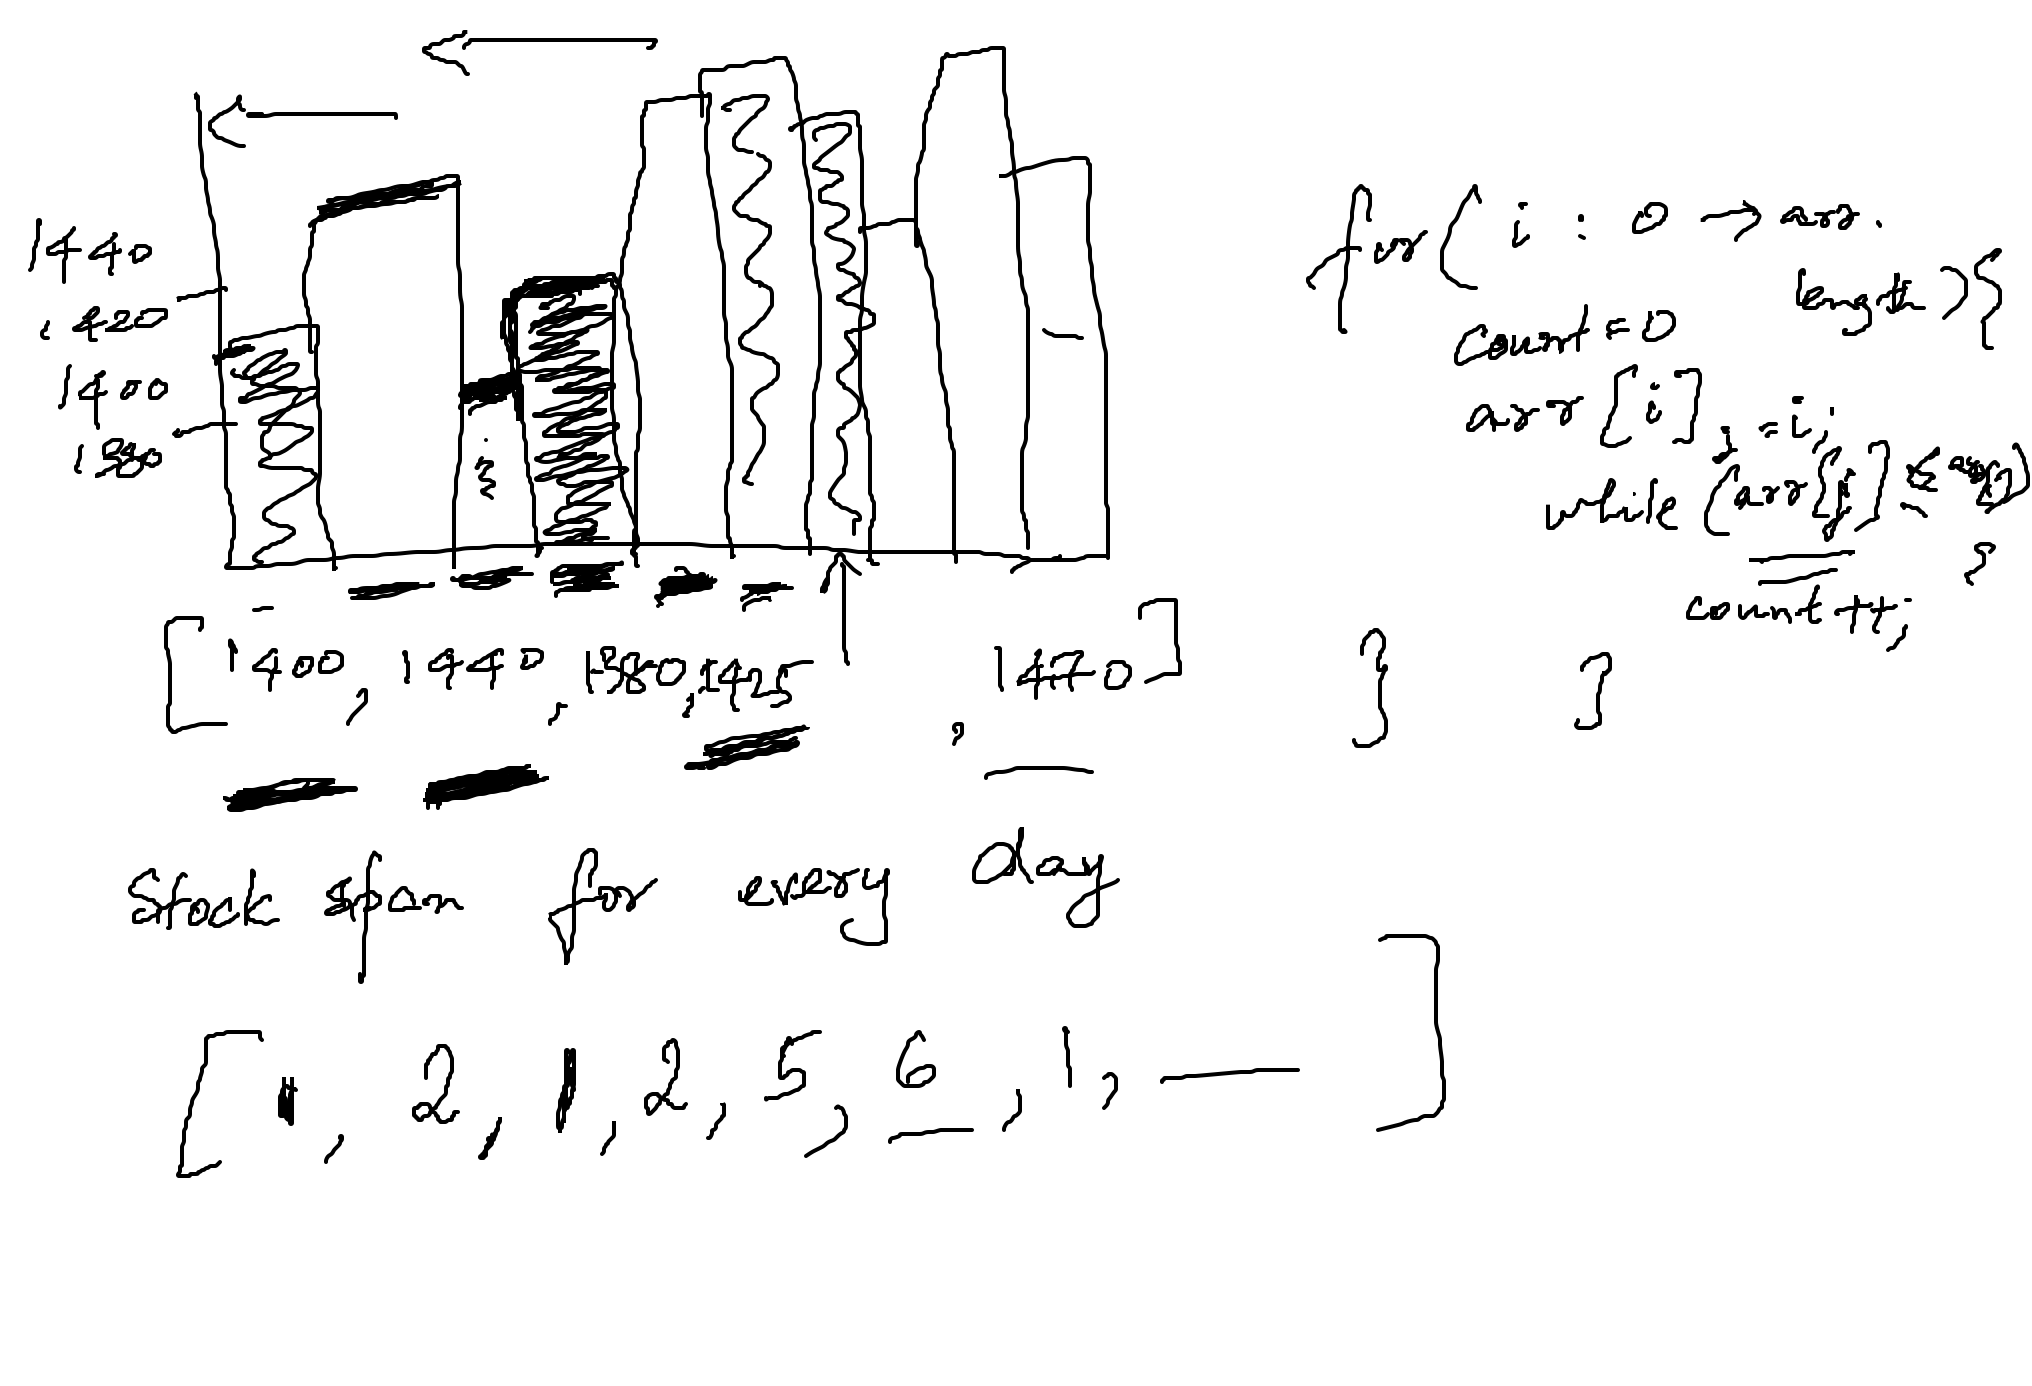 1440
1420
1400
1380
[1400, 1440, 1380, 1425 , 1470]
Stock span for every day
[1, 2, 1, 2, 5, 6, 1, — ]
for( i : 0 → arr.
length ){
count = 0
arr [i]
j = i;
while (arr[j] ≤
count ++;
}
}